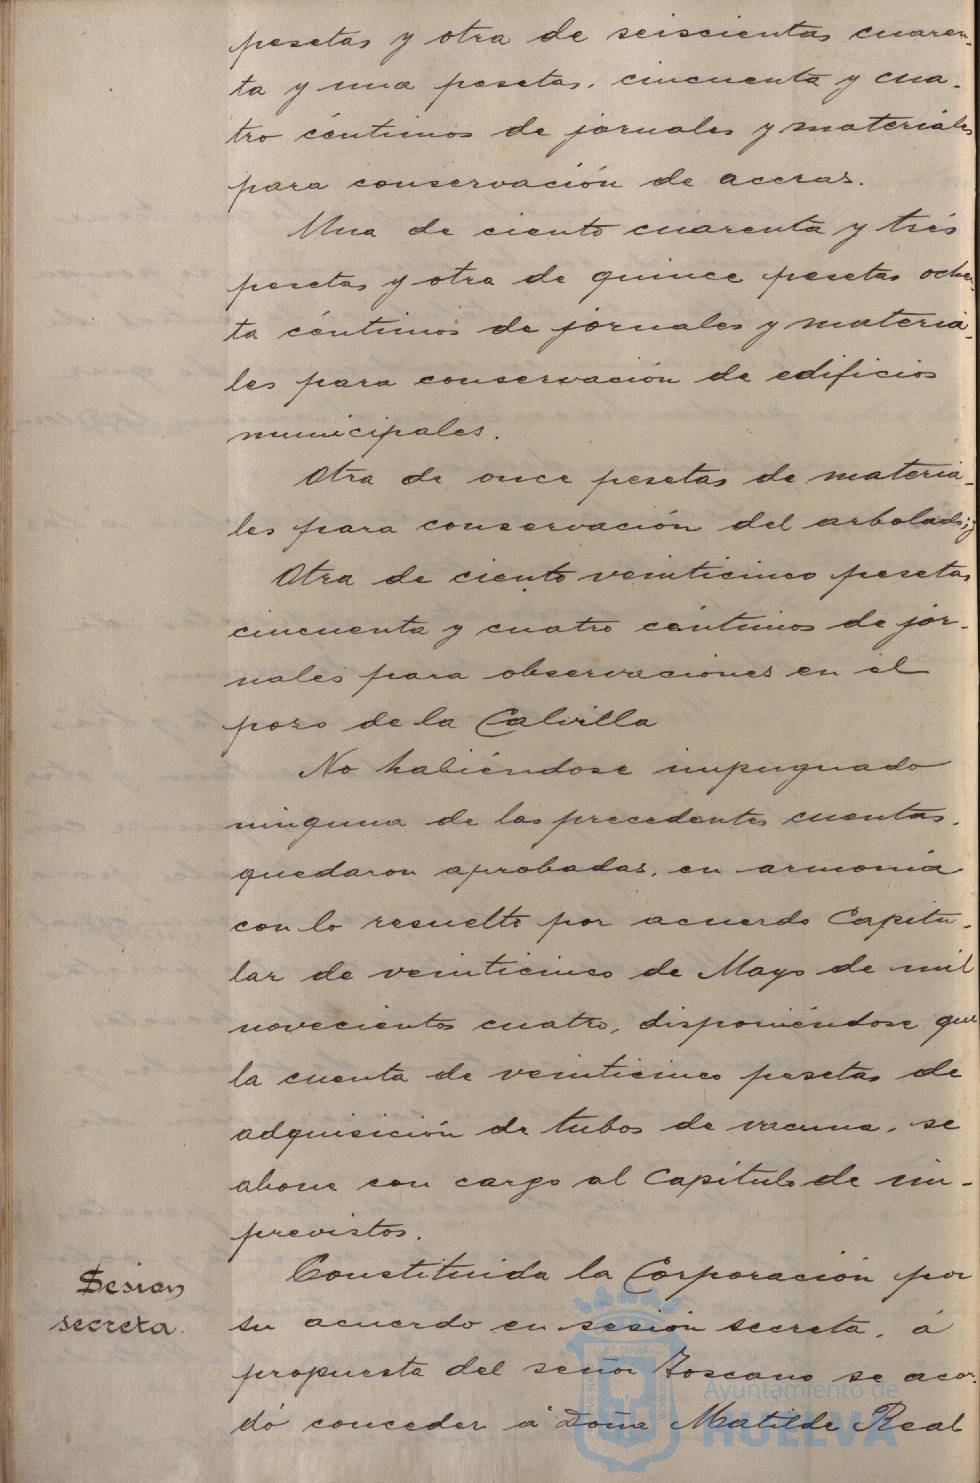 pesetas y otra de seiscientas cuaren-
ta y una pesetas, cincuenta y cua-
tro céntimos de jornales y materiales
para conservación de aceras.
Una de ciento cuarenta y trés
pesetas y otra de quince pesetas ochen-
ta céntimos de jornales y materia-
les para conservación de edificios
municipales.
Otra de once pesetas de materia-
les para conservación del arbolado; y
Otra de ciento veinticinco pesetas
cincuenta y cuatro céntimos de jor-
nales para observaciones en el
pozo de la Calvilla
No habiéndose impugnado
ninguna de las precedentes cuentas,
quedaron aprobadas, en armonia
con lo resuelto por acuerdo Capitu-
lar de veinticinco de Mayo de mil
novecientos cuatro, disponiéndose que
la cuenta de veinticinco pesetas de
adquisición de tubos de vacuna, se
abone con cargo al Capítulo de im-
previstos.
Sesion
secreta.
Constituida la Corporación por
su acuerdo en sesión secreta, á
propuesta del señor Toscano se acor-
dó conceder á Doña Matilde Real
Ayuntamiento de
HUELVA